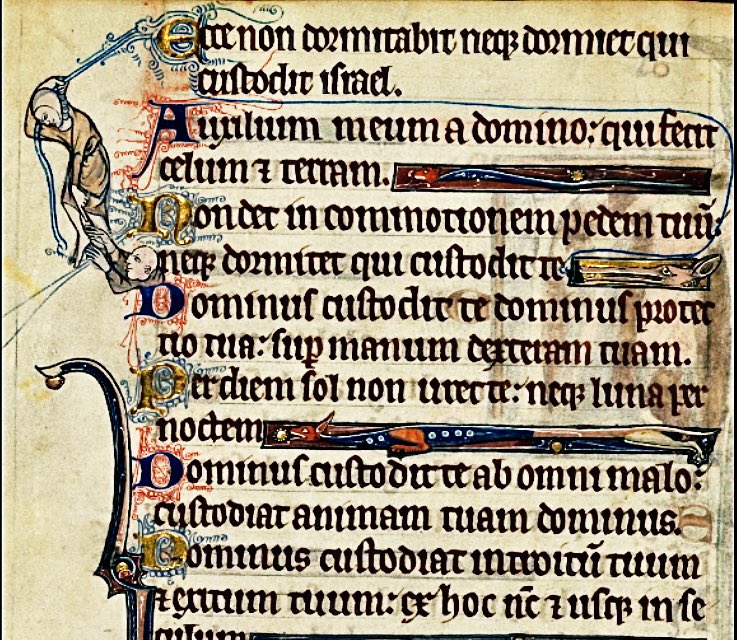 Ecce non dormitabit neqꝫ dormiet qui
custodit israel.
Auxilium meum a domino: qui fecit
celum ⁊ terram.
Non det in commotionem pedem tuū:
neqꝫ dormitet qui custodit te
Dominus custodit te dominus protec
tio tua: suꝑ manum dexteram tuam.
Per diem sol non uret te: neqꝫ luna per
noctem
Dominus custodit te ab omni malo:
custodiat animam tuam dominus.
Dominus custodiat introitū tuum
⁊ exitum tuum: ex hoc nc̄ ⁊ usqꝫ in se
culum